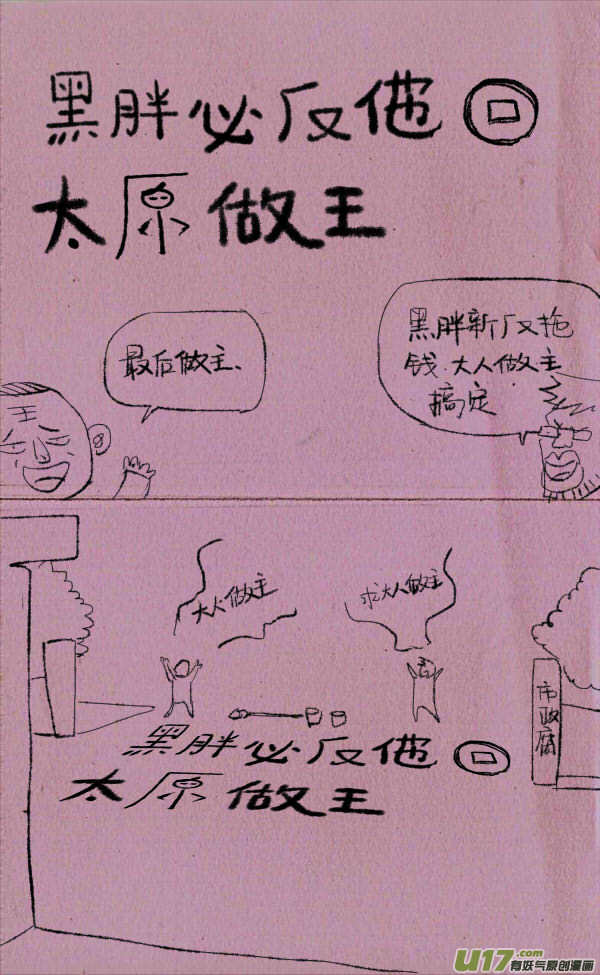 黑胖必反他
太原做王
最后做主、
黑胖新反拖
钱.大人做主
搞定
王
大人做主
求大人做主
市政腐
黑胖必反他
太原做王
U17.com
有妖气原创漫画